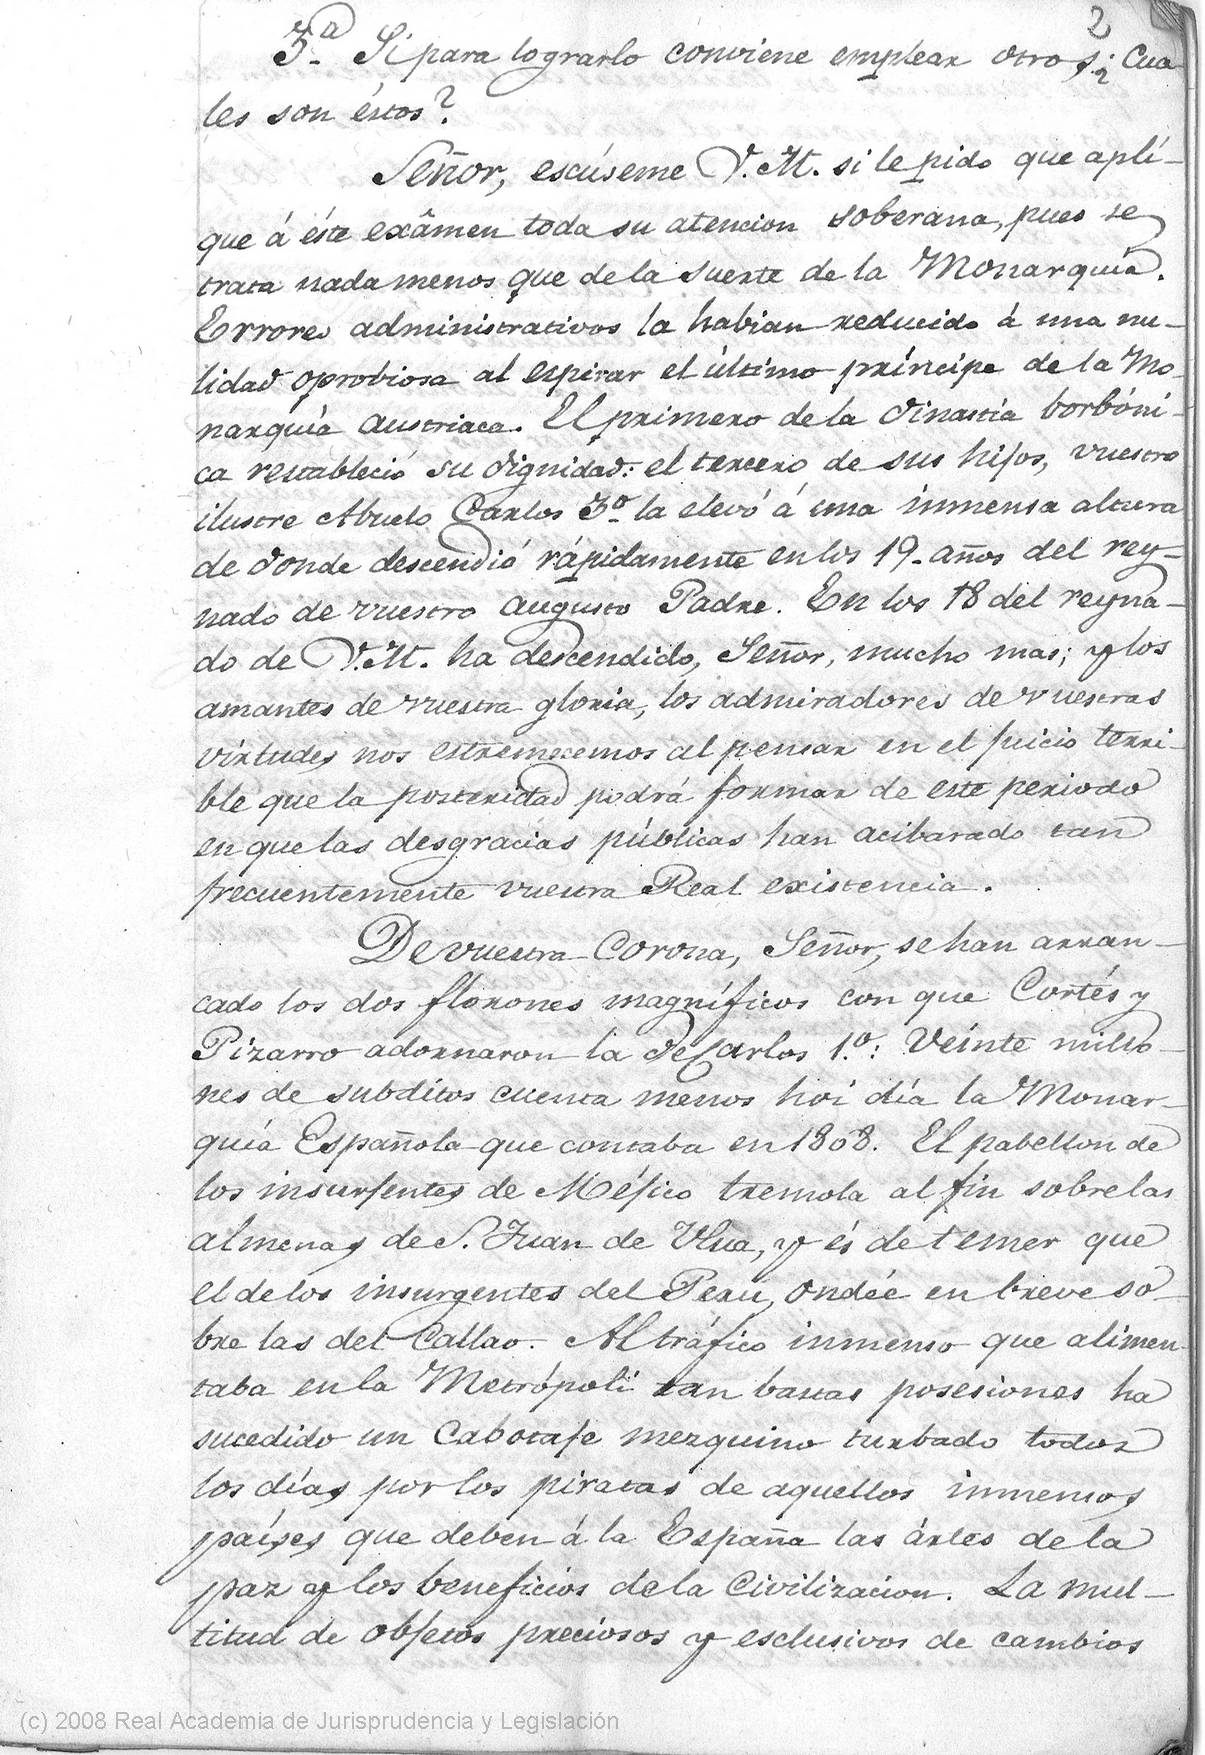 2
3.ª Si para lograrlo conviene emplear otros; cua-
les son éstos?
Señor, escúseme V.M. si le pido que aplí-
que á éste exâmen toda su atencion soberana, pues se
trata nada menos que de la suerte de la Monarquía.
Errores administrativos la habian reducido á una nu-
lidad oprobiosa al espirar el último príncipe de la Mo-
narquía Austriaca. El primero de la Dinastía borbóni-
ca restableció su dignidad: el tercero de sus hijos, vuestro
ilustre Abuelo Carlos 3º la elevó á una inmensa altura
de donde descendió rápidamente en los 19 años del rey-
nado de vuestro augusto Padre. En los 18 del reyna-
do de V.M. ha descendido, Señor, mucho mas; y los
amantes de vuestra gloria, los admiradores de vuestras
virtudes nos estremecemos al pensar en el juicio terri-
ble que la posteridad podrá formar de este periodo
en que las desgracias públicas han acibarado tan
frecuentemente vuestra Real existencia.
De vuestra Corona, Señor, se han arran-
cado los dos florones magníficos con que Cortés y
Pizarro adornaron la de Carlos 1.º: Veinte millo-
nes de subditos cuenta menos hoi día la Monar-
quía Española que contaba en 1808. El pabellon de
los insurjentes de Méjico tremola al fin sobre las
almenas de S. Juan de Ulua, y és de temer que
el de los insurgentes del Perú, ondée en breve so-
bre las del Callao. Al tráfico inmenso que alimen-
taba en la Metrópoli tan bastas posesiones ha
sucedido un Cabotaje mezquino turbado todos
los días por los piratas de aquellos inmensos
países que deben á la España las ártes de la
paz y los beneficios de la Civilizacion. La mul-
titud de objetos preciosos y esclusivos de cambios
(c) 2008 Real Academia de Jurisprudencia y Legislación